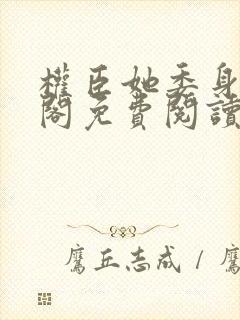 權臣她委身
閣免費閱讀
鷹丘志成/鷹